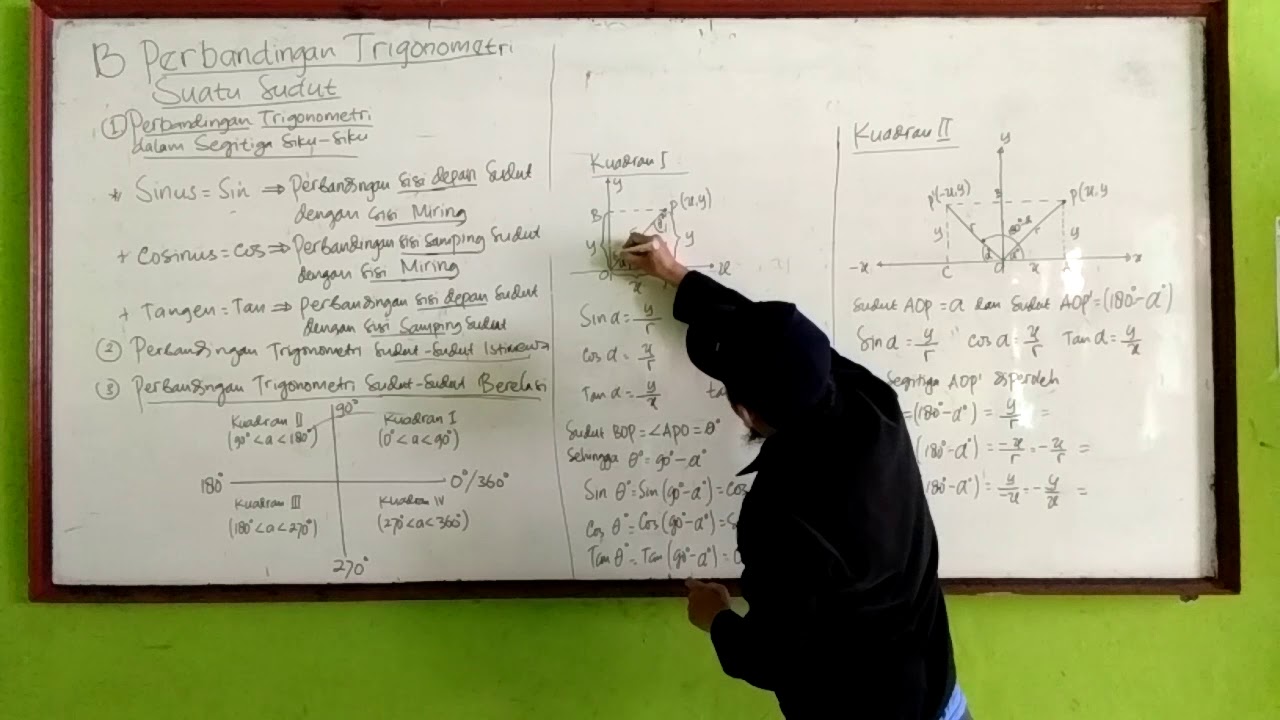 B Perbandingan Trigonometri
Suatu Sudut
① Perbandingan Trigonometri
dalam Segitiga Siku-Siku
* Sinus = Sin ⇒ Perbandingan sisi depan Sudut
dengan sisi Miring
+ Cosinus = Cos ⇒ Perbandingan sisi Samping Sudut
dengan sisi Miring
+ Tangen = Tan ⇒ Perbandingan sisi depan Sudut
dengan sisi Samping Sudut
② Perbandingan Trigonometri Sudut-Sudut Istimewa
③ Perbandingan Trigonometri Sudut-Sudut Berelasi
90°
Kuadran II
(90° < a < 180°)
Kuadran I
(0° < a < 90°)
180°
0°/360°
Kuadran III
(180° < a < 270°)
Kuadran IV
(270° < a < 360°)
270°
Kuadran I
y
B
P(x,y)
y
y
O
x
x
Sin a = y/r
Cos a = x/r
Tan a = y/x
Sudut BOP = ∠APO = θ°
Sehingga θ° = 90° - a°
Sin θ° = Sin (90° - a°) = Cos
Cos θ° = Cos (90° - a°) =
Tan θ° = Tan (90° - a°) =
Kuadran II
y
P'(-x,y)
B
P(x,y
y
r
r
y
-x
C
O
x
A
x
Sudut AOP = a dan Sudut AOP' = (180° - a°)
Sin a = y/r Cos a = x/r Tan a = y/x
Segitiga AOP' diperoleh
= (180° - a°) = y/r =
(180° - a°) = -x/r = - x/r =
180° - a°) = y/-x = - y/x =